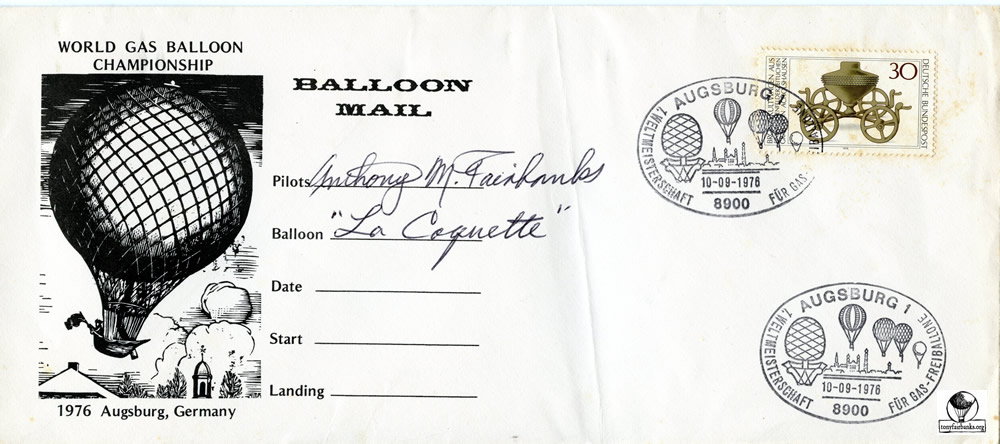 WORLD GAS BALLOON
CHAMPIONSHIP
BALLOON
MAIL
Pilots Anthony M. Fairbanks
Balloon "La Coquette"
Date
Start
Landing
1976 Augsburg, Germany
30
DEUTSCHE BUNDESPOST
AUGSBURG 1
1. WELTMEISTERSCHAFT FÜR GAS-
10-09-1976
8900
AUGSBURG 1
1. WELTMEISTERSCHAFT FÜR GAS-FREIBALLONE
10-09-1976
8900
tonyfairbanks.org